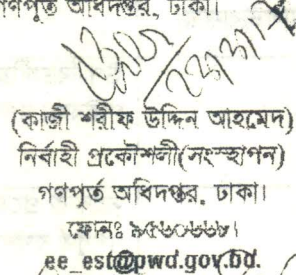 গণপূর্ত অধিদপ্তর, ঢাকা।
(কাজী শরীফ উদ্দিন আহমেদ)
নির্বাহী প্রকৌশলী(সংস্হাপন)
গণপূর্ত অধিদপ্তর, ঢাকা।
ফোনঃ ৯৫৬০৬৬৮।
ee_est@pwd.gov.bd.